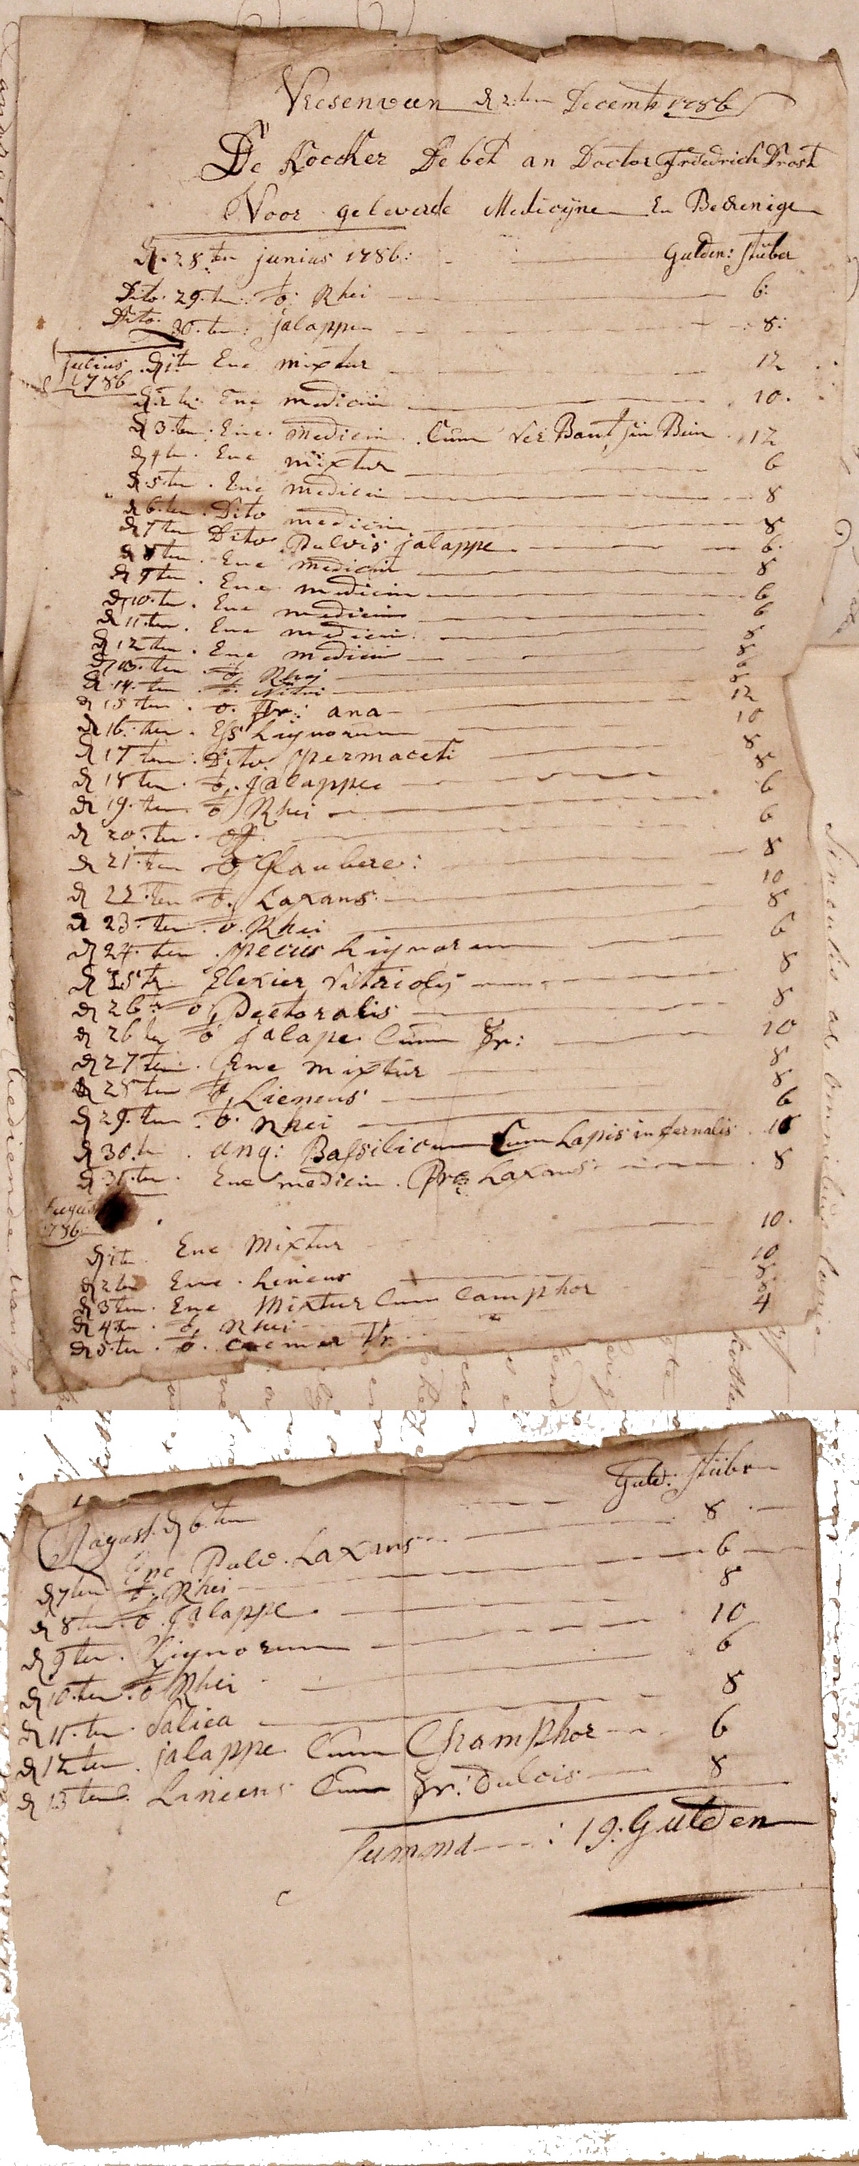 Veesenveen d 2ten Decemb 1786
De Koecker Debet an Doctor Friedrich Drost
Voor geleverde Medicijne En Bedienige
d 28ten junius 1786: Gulden: stüber
Dito 29.ten: Rhei 6:
Dito 30.ten: jalappe 8:
julius 1786 d 1ten Ene mixtur 12
d 2te: Ene medicin 10.
d 3ten. Eine. medicin. Cum Bein 12
d 4ten. Ene mixtur 6
d 5ten. Ene medicin 8
d 6ten. Dito medicin 8
d 7ten Dito Pulvis jalappe 6.
d 8ten. Ene medicin 8
d 9ten. Ene medicin 6
d 10.ten. Ene medicin 6
d 11.ten. Ene medicin 8
d 12ten. Ene medicin 8
d 13.ten Rhei 6
d 14.ten Nitri 8
d 15ten. ana 12
d 16.ten. Ess Lignorum 10
d 17ten. Dito spermaceti 8
d 18ten. jalappe 8
d 19.ten Rhei 6
d 20.ten. 6
d 21.ten Glaubere: 8
d 22ten Laxans 10
d 23ten. Rhei 8
d 24.ten. specius Lignorum 6
d 25t. Elexier Vitriolij 8
d 26t Pectoralis 8
d 26te jalape. Cum 10
d 27ten. Ene mixtur 8
d 28ten Lieneus 8
d 29.ten Rhei 6
d 30.te. ung: Bassilicum Cum Lapis infernalis 10
d 31.ten. Ene medicin. Pro Laxans: 8
August 1786:
d 1te. Ene Mixtur 10.
d 2ten Ene. Lineus 10
d 3ten. Ene Mixtur Cum Camphor 8
d 4ten. Rhei 8
d 5.ten. cremer 4
Guld: stüber
August d 6.ten
Ene Pulv. Laxans 8
d 7ten Rhei 6
d 8ten. jalappe 8
d 9ten. Lignorum 10
d 10.ten. Rhei 6
d 11.ten. Salica 8
d 12ten. jalappe Cum Champhor 6
d 13ten. Lineens Cum dulcis 8
summa : 19. Gulden